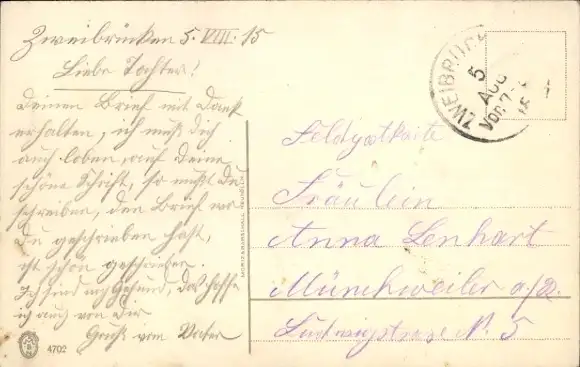 Zweibrücken 5. VIII. 15
Liebe Tochter!
Deinen Brief mit Dank
erhalten, ich muß Dich
auch loben, auf Deine
schöne Schrift, so mußt Du
schreiben, den Brief wo
Du geschrieben hast,
ist schön geschrieben.
Ich sind noch Gesund, das hoffe
ich auch von Dir
Gruß vom Vater
4702
ZWEIBRÜCK
5 AUG
Vor. 7-
15
Feldpostkarte
Fräulein
Anna Lenhart
Münchweiler a/R.
Ludwigstrase Nº. 5